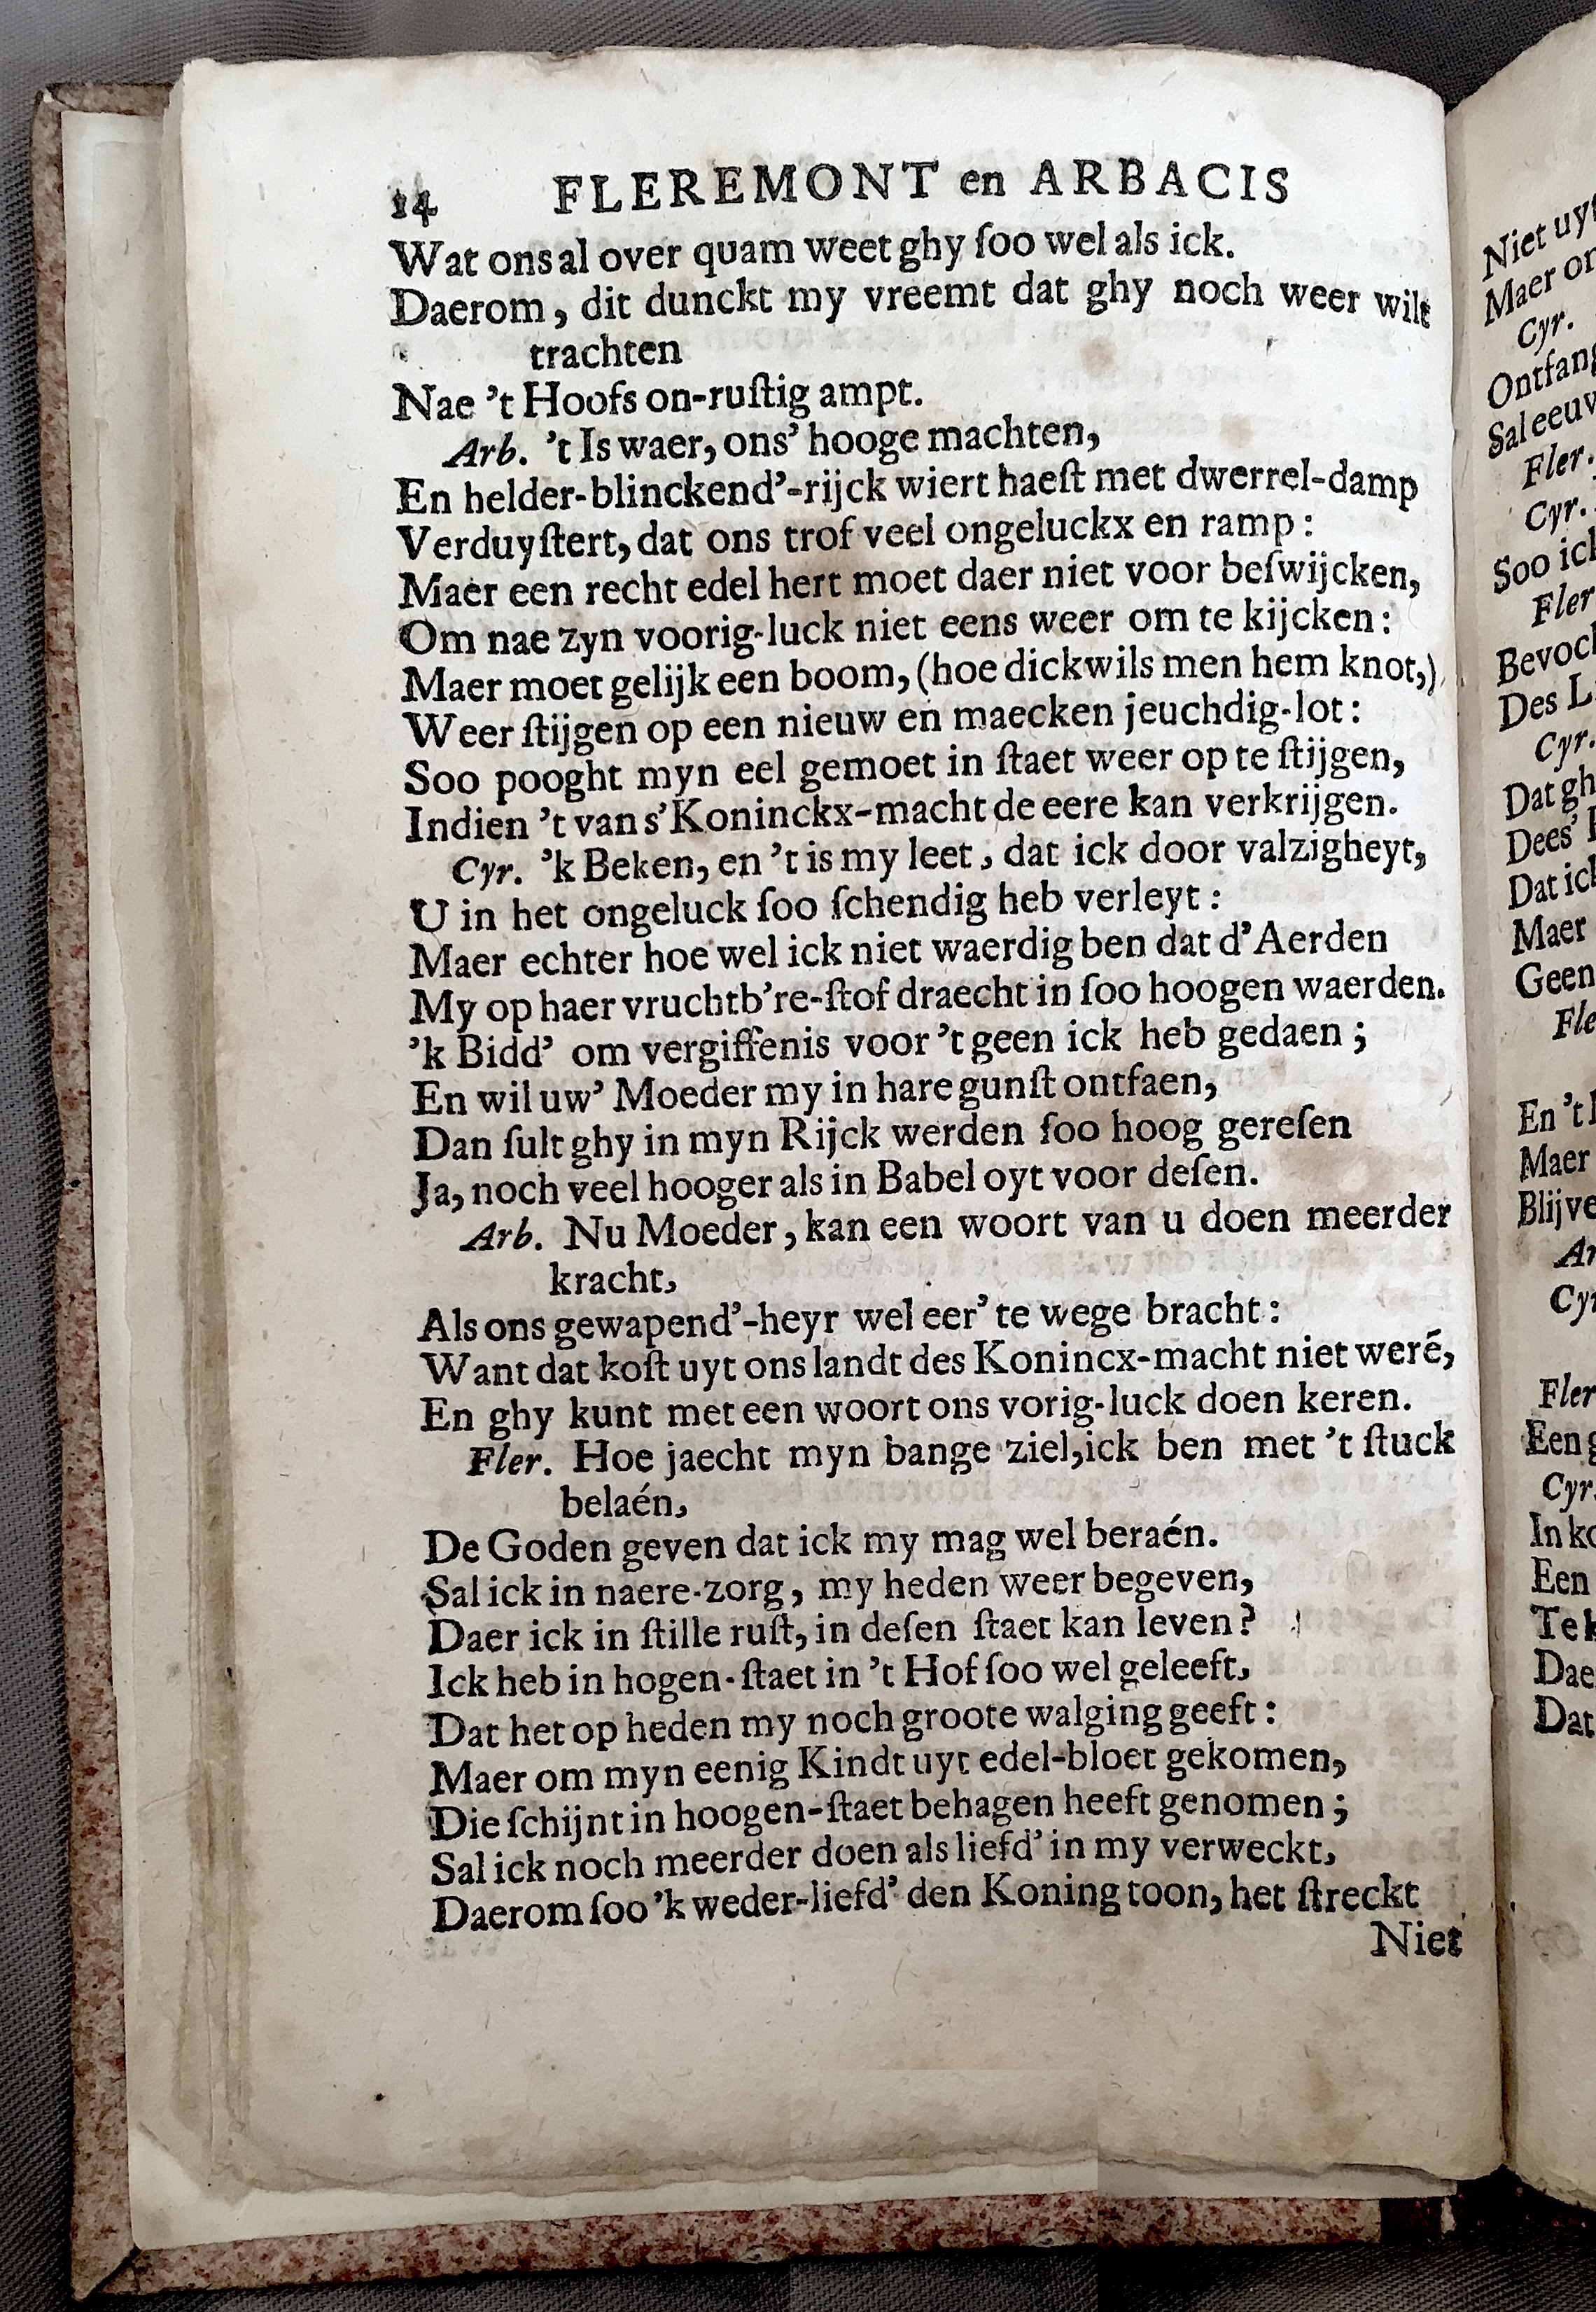 14 FLEREMONT en ARBACIS
Wat ons al over quam weet ghy ſoo wel als ick.
Daerom, dit dunckt my vreemt dat ghy noch weer wilt
trachten
Nae 't Hoofs on-ruſtig ampt.
Arb. 't Is waer, ons' hooge machten,
En helder-blinckend'-rijck wiert haeſt met dwerrel-damp
Verduyſtert, dat ons trof veel ongeluckx en ramp:
Maer een recht edel hert moet daer niet voor beſwijcken,
Om nae zyn voorig-luck niet eens weer om te kijcken:
Maer moet gelijk een boom, (hoe dickwils men hem knot,)
Weer ſtijgen op een nieuw en maecken jeuchdig-lot:
Soo pooght myn eel gemoet in ſtaet weer op te ſtijgen,
Indien 't van s'Koninckx-macht de eere kan verkrijgen.
Cyr. 'k Beken, en 't is my leet, dat ick door valzigheyt,
U in het ongeluck ſoo ſchendig heb verleyt:
Maer echter hoe wel ick niet waerdig ben dat d'Aerden
My op haer vruchtb're-ſtof draecht in ſoo hoogen waerden.
'k Bidd' om vergiffenis voor 't geen ick heb gedaen;
En wil uw' Moeder my in hare gunſt ontfaen,
Dan ſult ghy in myn Rijck werden ſoo hoog gereſen
Ja, noch veel hooger als in Babel oyt voor deſen.
Arb. Nu Moeder, kan een woort van u doen meerder
kracht,
Als ons gewapend'-heyr wel eer' te wege bracht:
Want dat koſt uyt ons landt des Konincx-macht niet weré,
En ghy kunt met een woort ons vorig-luck doen keren.
Fler. Hoe jaecht myn bange ziel,ick ben met 't ſtuck
belaén,
De Goden geven dat ick my mag wel beraén.
Sal ick in naere-zorg, my heden weer begeven,
Daer ick in ſtille ruſt, in deſen ſtaet kan leven?
Ick heb in hogen-ſtaet in 't Hof ſoo wel geleeft,
Dat het op heden my noch groote walging geeft:
Maer om myn eenig Kindt uyt edel-bloet gekomen,
Die ſchijnt in hoogen-ſtaet behagen heeft genomen;
Sal ick noch meerder doen als liefd' in my verweckt,
Daerom ſoo 'k weder-liefd' den Koning toon, het ſtreckt
Niet
Niet
Maer
Cyr.
Sal
Fler.
Cyr.
Soo
Fler
Des
Cyr.
Dat
Dees'
Dat
Maer
Geen
En 't
Maer
Fler
Een
Cyr.
In
Een
Te
Dat